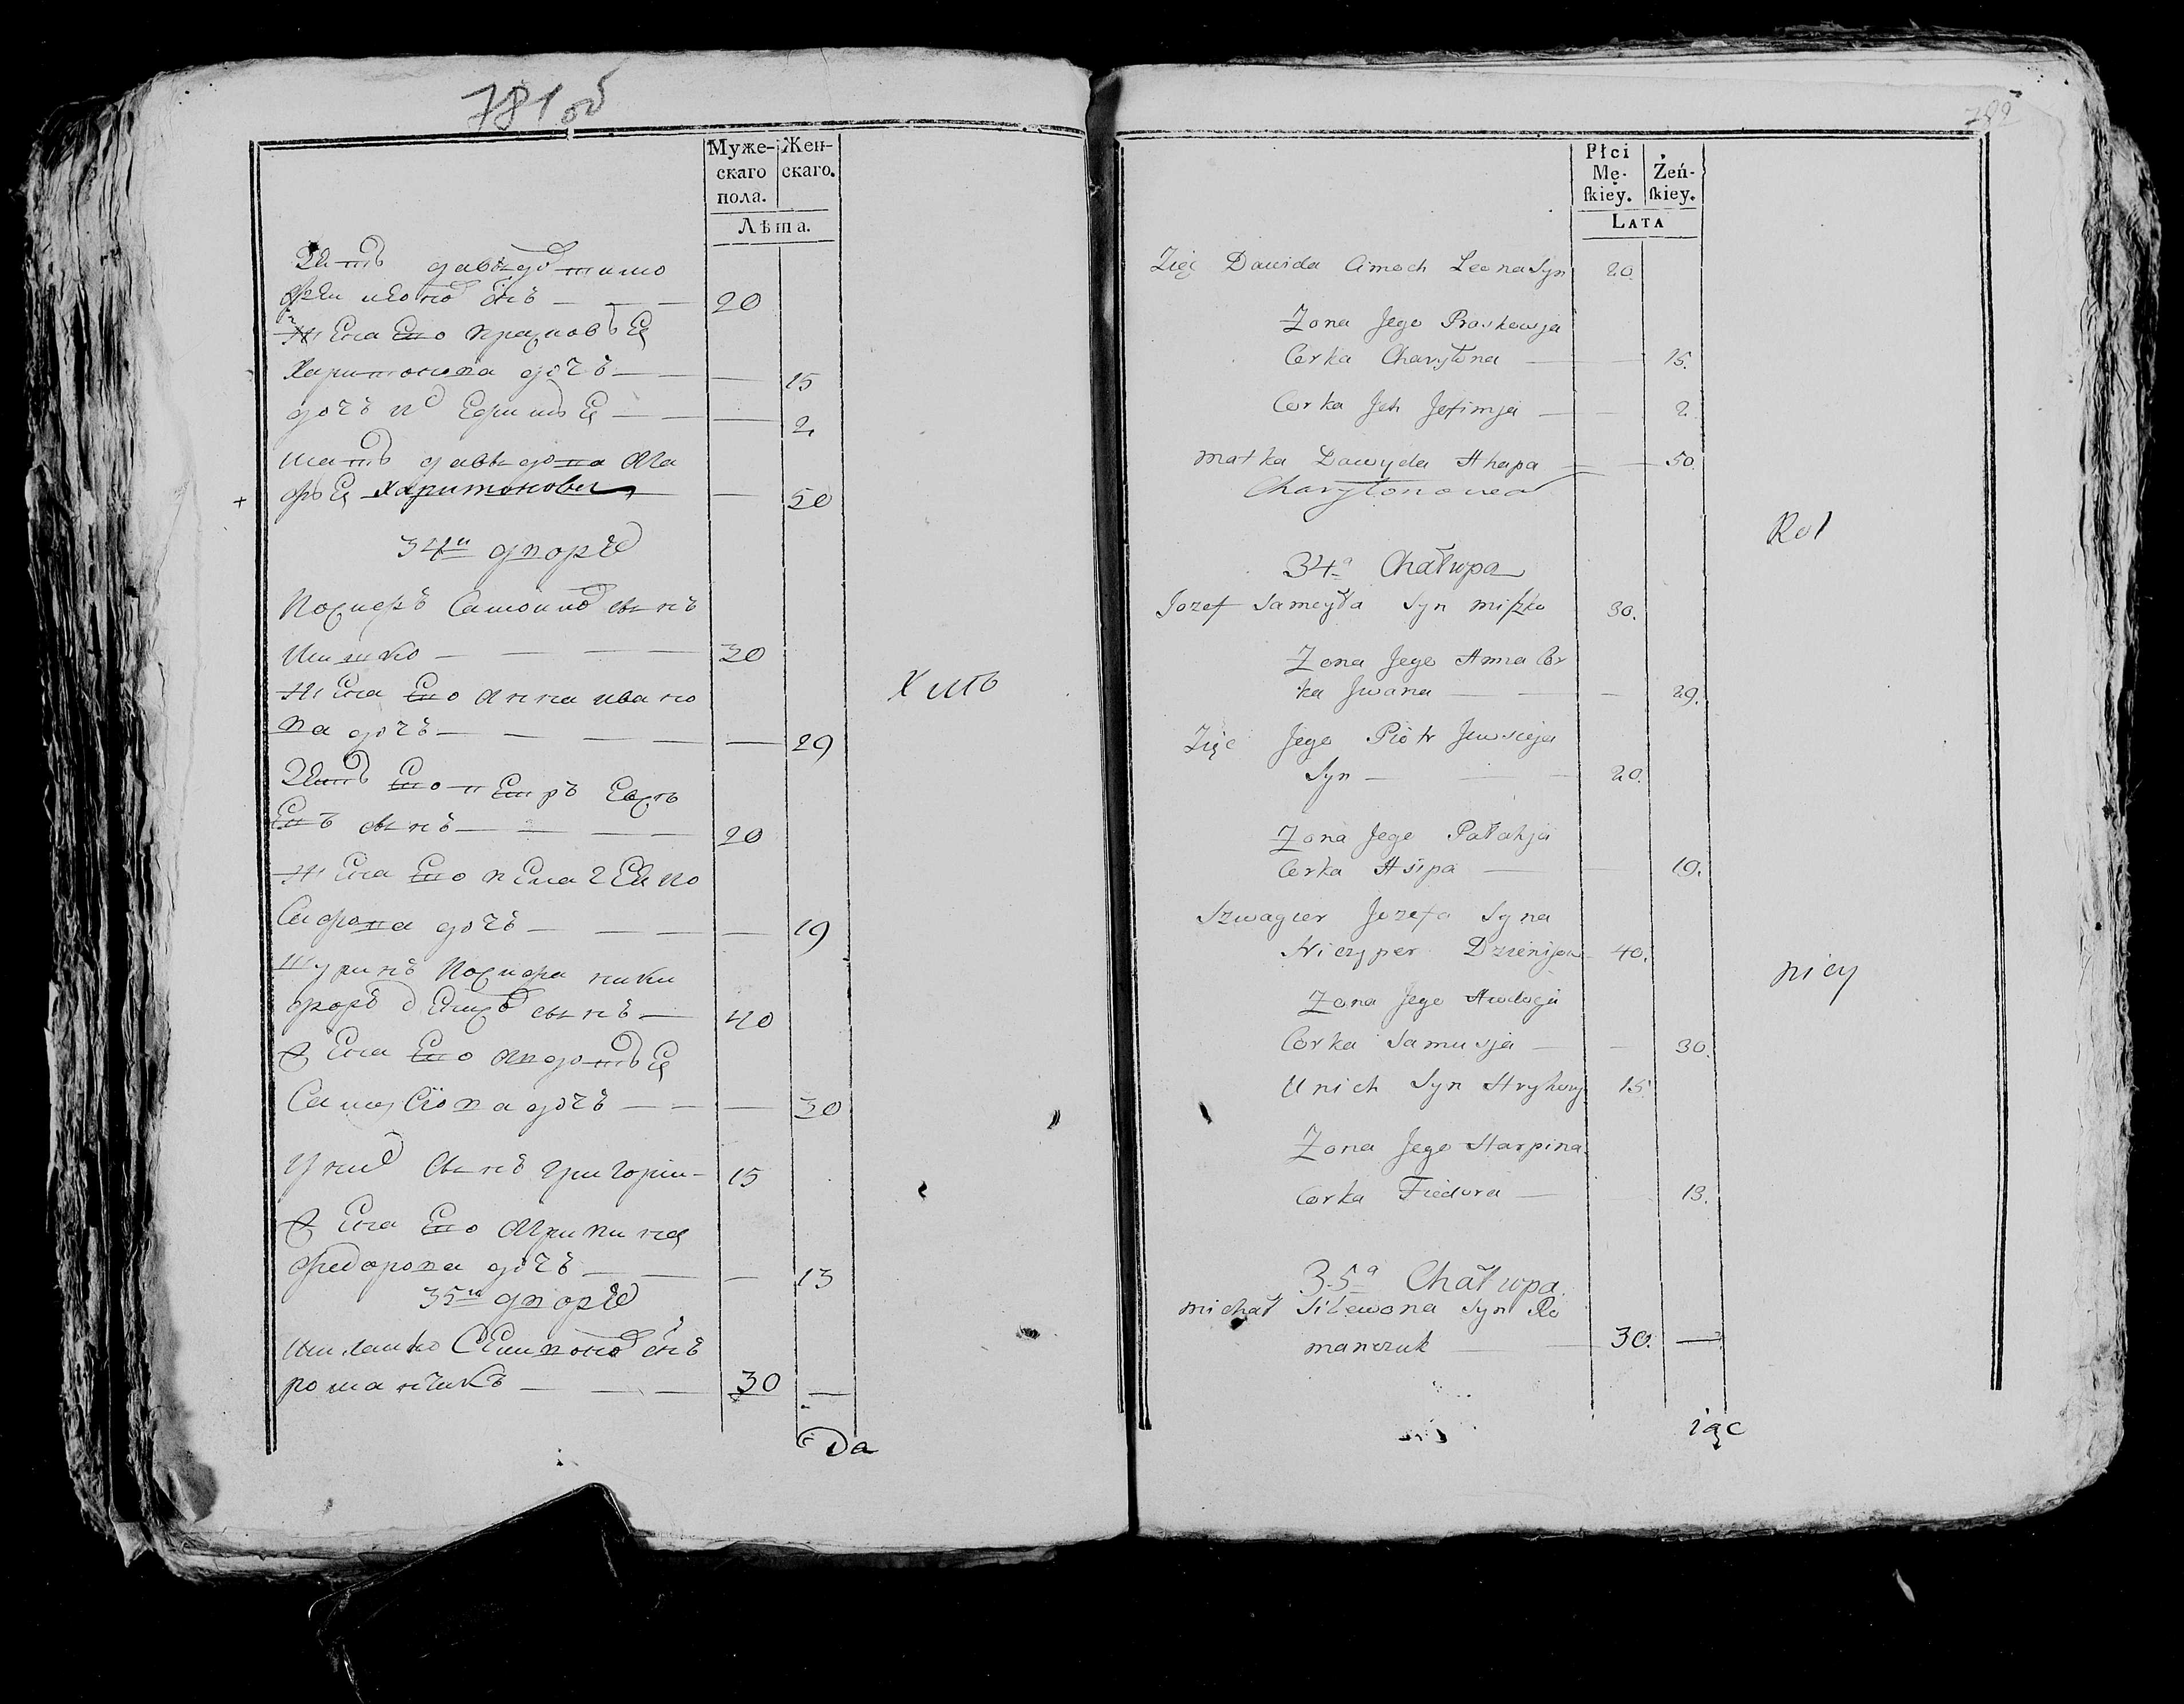 781 об
Муже- Жен-
скаго скаго.
пола.
Лѣта.
Зять давыдов тимо
фей леонов снъ — — — 20
Жена Его прасковья
Харитонова дочь — — 15
дочь их Ефимья — — 2
мать давыдова Ага
фья Харитонова — — 50
34й дворъ
Иосифъ Самойлов сынъ
Мишко — — — — 30
Жена Его Анна ивано
ва дочь — — — — 29
Зять Его петръ Евсѣ
евъ сынъ — — — — 20
Жена Его пелагея ио
сифова дочь — — — — 19
Шуринъ Иосифа ники
форъ денисов сынъ — 40
Жена Его Авдотья
Самусiова дочь — — — 30
Униc Сынъ григорiи — 15
Жена Его Агрипина
Федорова дочь — — — 13
35й дворъ
Михайло Семионов снъ
романчикъ — — — 30 —
Хлѣ
Да
782
Płci
Mę- Żeń-
skiey. skiey.
LATA
Zięc Dawida Cimoch Leona Syn 20.
Zona Jego Praskowja
Corka Charytona — — 15.
Corka Jch Jefimja — — 2.
Matka Dawyda Ahapa — — 50.
Charytonowa
34.a Chałupa
Jozef Sameyła Syn Miszko 30.
Zona Jego Anna Cor
ka Jwana — — — 29.
Zięc Jego Piotr Jewsieja
Syn — — — 20.
Zona Jego Pałahja
Corka Asipa — — 19.
Szwagier Jozefa Syna
Niczyper Dzienisow 40.
Zona Jego Awdocja
Corka Samusja — — 30.
Unich Syn Hryhory 15.
Zona Jego Harpina
Corka Fiedora — 13.
35a Chałupa
Michał Silewona Syn Ro
manczuk — — 30. —
Rol
nicy
iąc